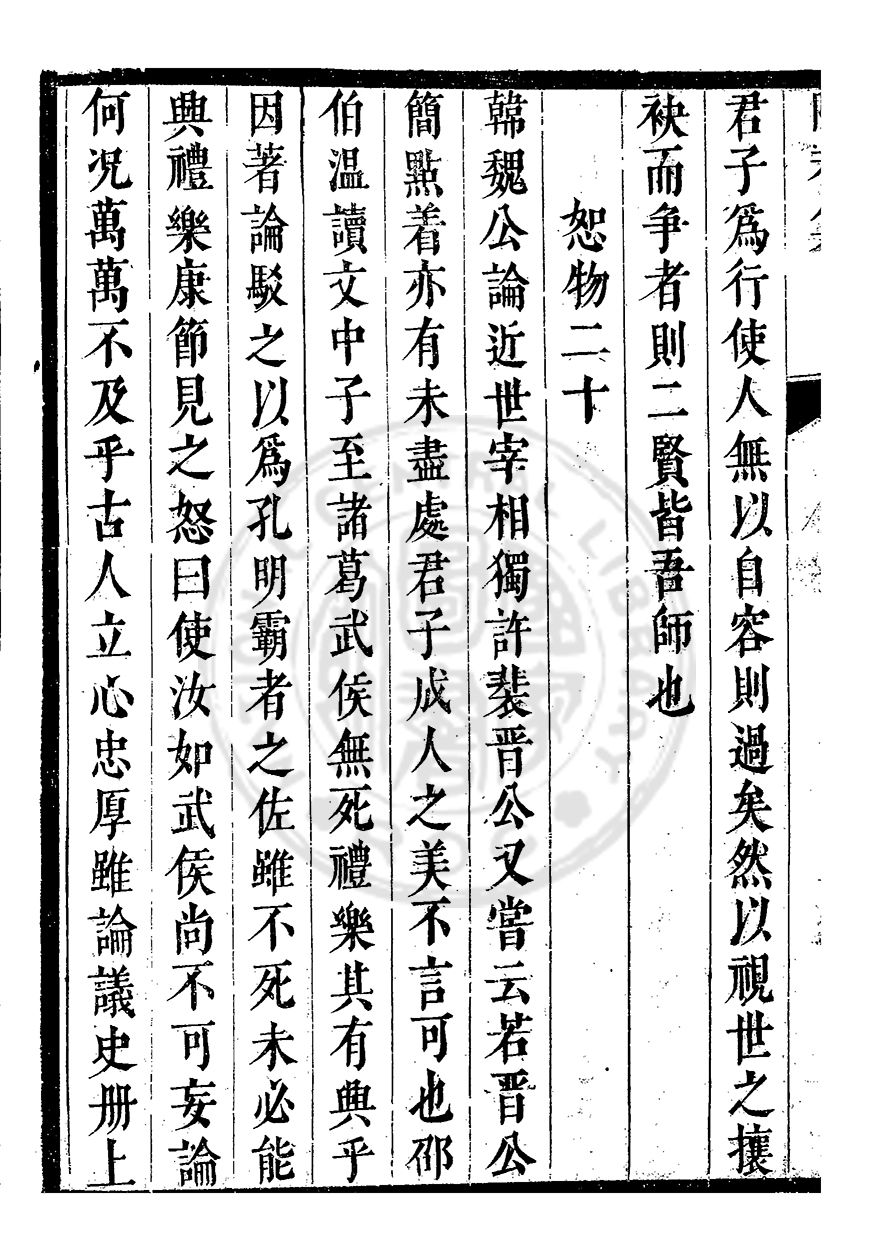 君子爲行使人無以自容則過矣然以視世之攘
袂而争者則二賢皆吾師也
恕物二十
韓魏公論近世宰相獨許裴晋公又嘗云若晋公
簡點着亦有未盡處君子成人之美不言可也邵
伯温讀文中子至諸葛武侯無死禮樂其有興乎
因著論駁之以爲孔明霸者之佐雖不死未必能
興禮樂康節見之怒曰使汝如武侯尚不可妄論
何况萬萬不及乎古人立心忠厚雖論議史册上